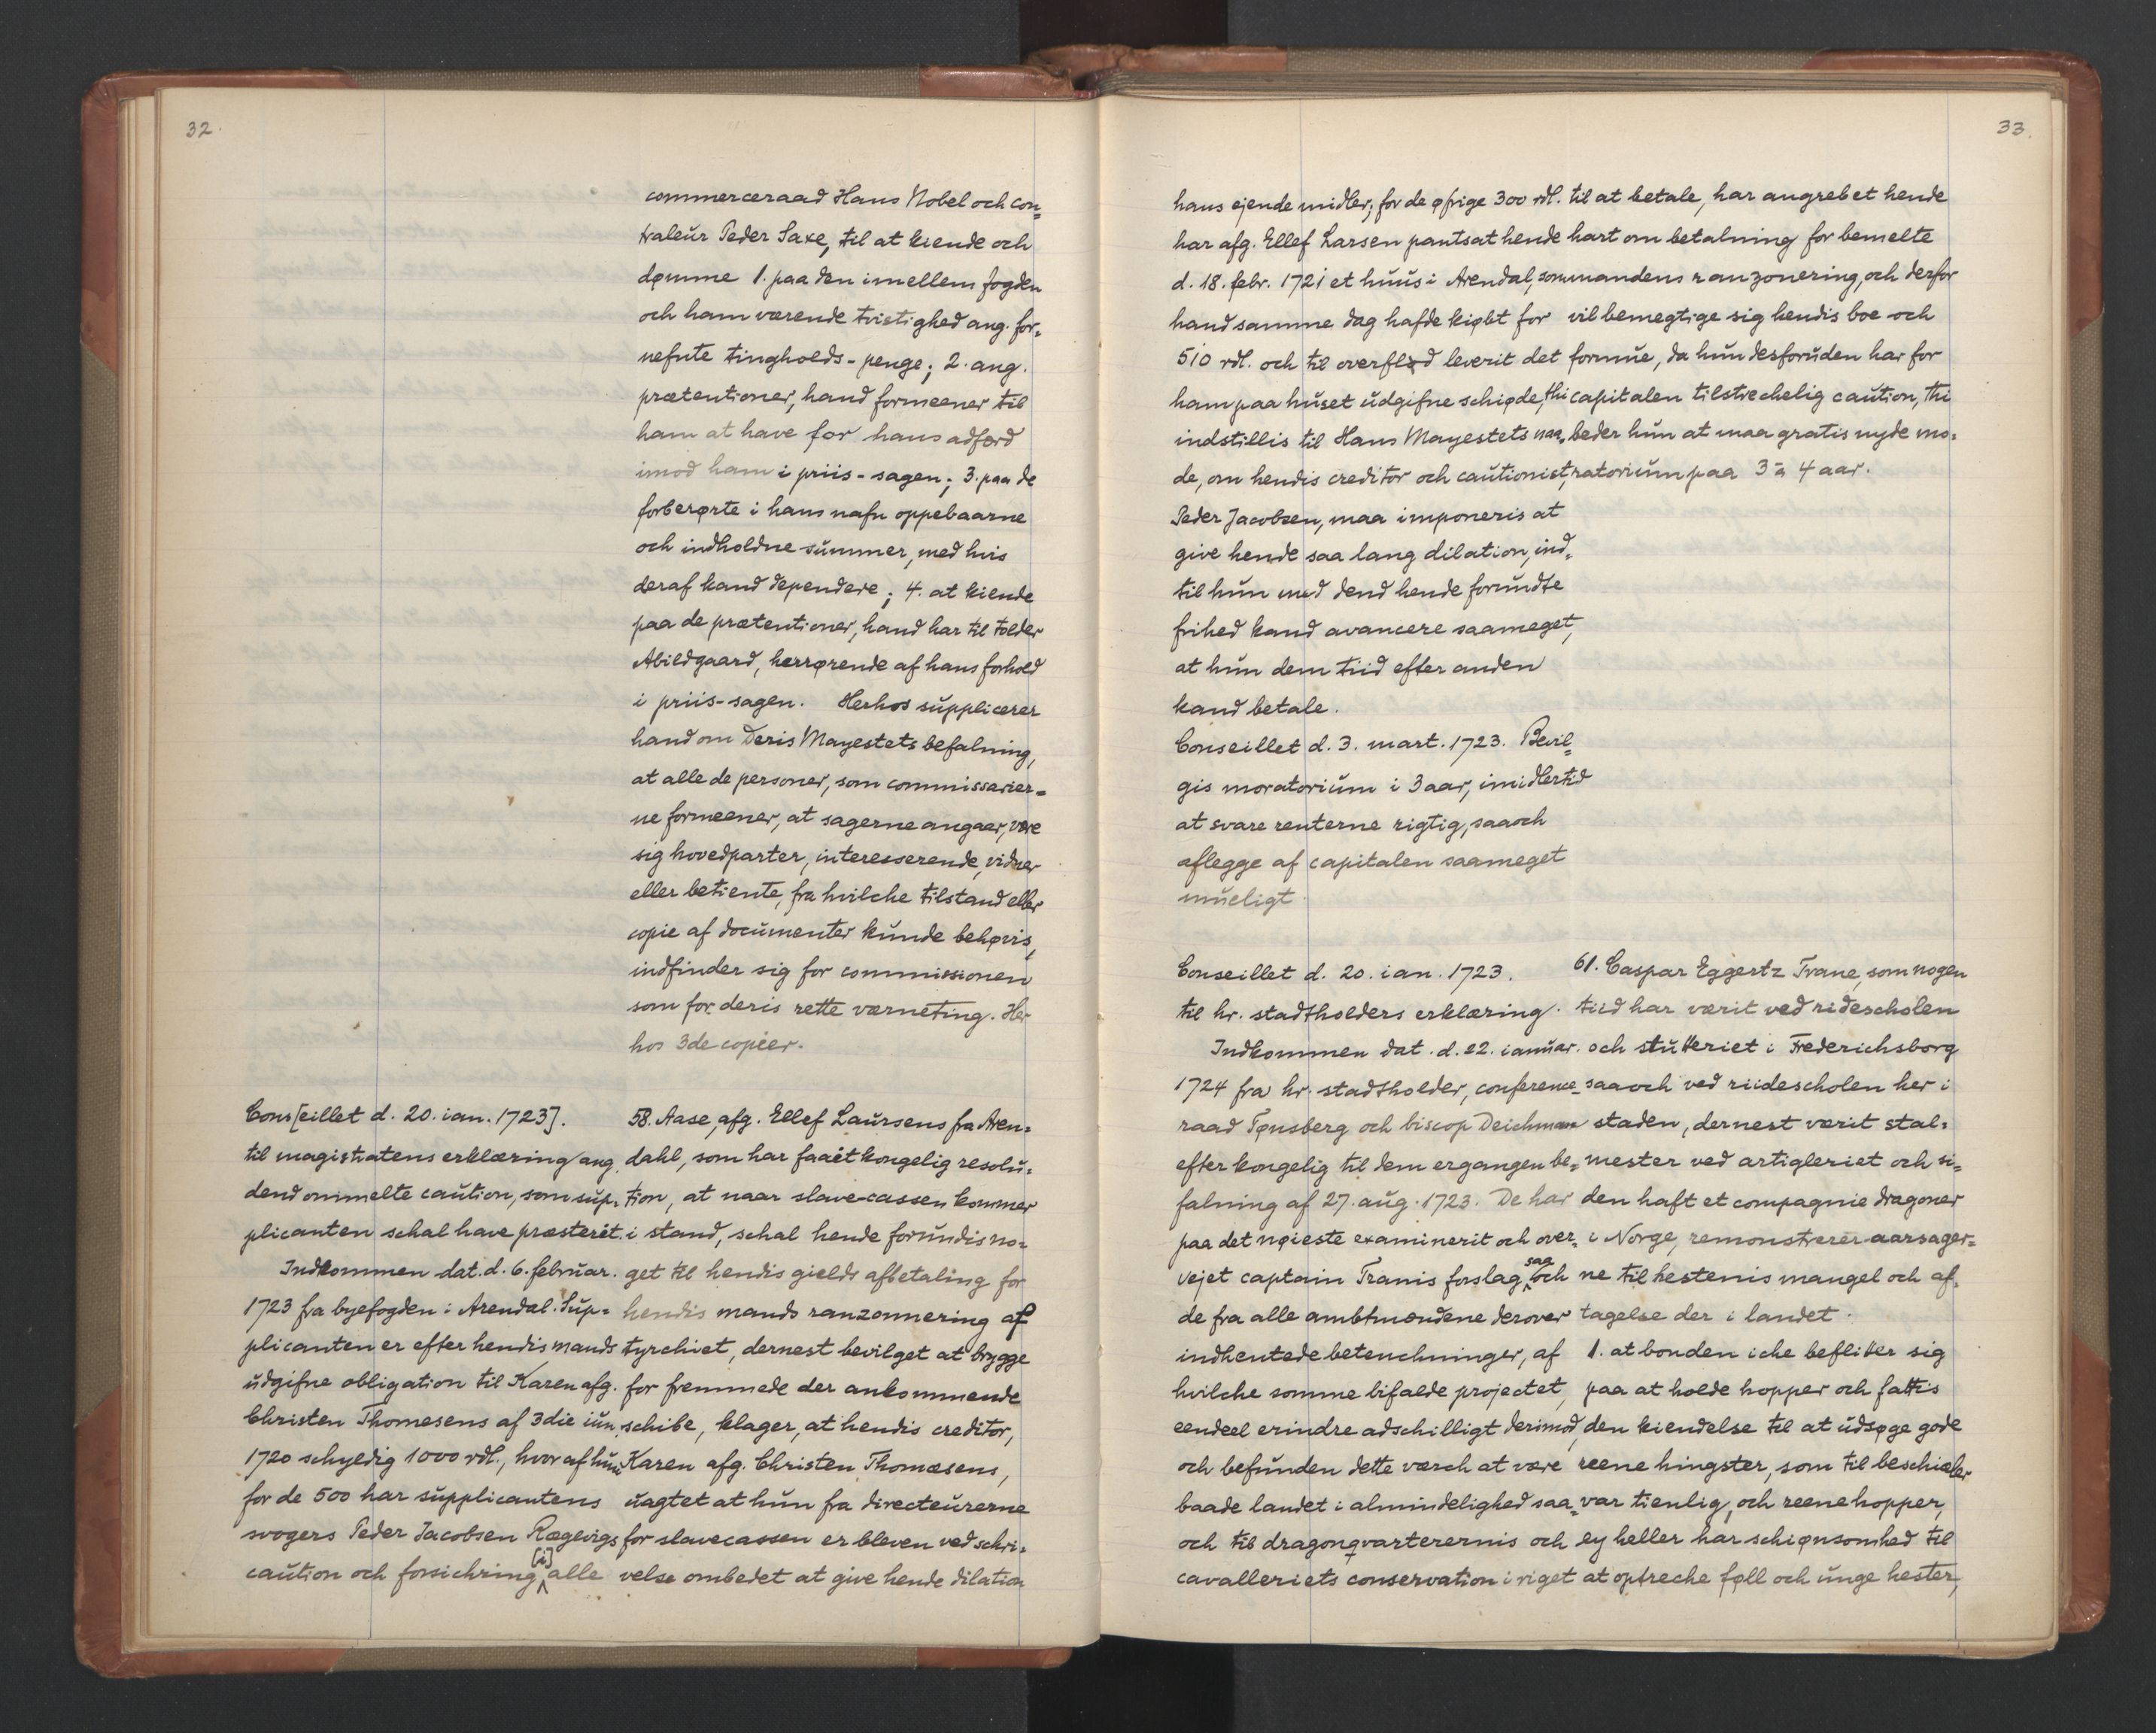 32.
commerceraad Hans Nobel och con=
traleur Peder Saxe, til at kiende och
dømme 1. paa den imellem fogden
och ham værende tvistighed ang. for=
nefnte tingholds-penge; 2. ang.
prætentioner, hand formeener til
ham at have for hans adfærd
imod ham i priis-sagen; 3. paa de
forberørte i hans nafn oppebaarne
och indholdne summer, med hvis
deraf kand dependere; 4. at kiende
paa de prætentioner, hand har til tolder
Abildgaard, herrørende af hans forhold
i priis-sagen. Herhos supplicerer
hand om Deris Mayestets befalning,
at alle de personer, som commissarier=
ne formeener, at sagerne angaaer, være
sig hovedparter, interesserende, vidner
eller betiente, fra hvilche tilstand eller
copie af documenter kunde behøvis,
indfinder sig for commissionen
som for deris rette værneting. Her
hos 3de copier.
Cons[eillet d. 20. ian. 1723].
til magistratens erklæring ang.
dend ommelte caution, som sup=
plicanten schal have præsterét.
Indkommen dat. d. 6. februar.
1723 fra byefogden i Arendal. Sup=
plicanten er efter hendis mands
udgifne obligation til Karen afg.
Christen Thomesens af 3die iun.
1720 schyldig 1000 rdl., hvor af hun
for de 500 har supplicantens
svogers Peder Jacobsen Rægevigs
caution och forsichring [i] alle
58. Aase, afg. Ellef Laursens fra Aren=
dahl, som har faaet kongelig resolu=
tion, at naar slave-cassen kommer
i stand, schal hende forundis no=
get til hendis gields afbetaling for
hendis mands ranzonnering af
tyrchiet, dernest bevilget at brygge
for fremmede der ankommende
schibe, klager, at hendis creditor,
Karen afg. Christen Thomæsens,
uagtet at hun fra directeurerne
for slavecassen er bleven ved schri=
velse ombedet at give hende dilation
33.
hans ejende midler; for de øfrige 300 rdl.
har afg. Ellef Larsen pantsat hende
d. 18. febr. 1721 et huus i Arendal, som
hand samme dag hafde kiøbt for
510 rdl. och til overflød leverit det
ham paa huset udgifne schiøde, thi
indstillis til Hans Mayestets naa=
de, om hendis creditor och cautionist,
Peder Jacobsen, maa imponeris at
give hende saa lang dilation, ind=
til hun med dend hende forundte
frihed kand avancere saameget,
at hun dem tiid efter anden
kand betale.
Conseillet d. 3. mart. 1723. Bevil=
gis moratorium i 3 aar, imidlertid
at svare renterne rigtig, saa och
aflegge af capitalen saameget
mueligt.
til at betale, har angrebet hende
hart om betalning for bemelte
mandens ranzonering, och derfor
vil bemegtige sig hendis boe och
formue, da hun desforuden har for
capitalen tilstrechelig caution, thi
beder hun at maa gratis nyde mo=
ratorium paa 3 à 4 aar.
Conseillet d. 20. ian. 1723.
til hr. stadtholders erklæring.
Indkommen dat. d. 22. ianuar.
1724 fra hr. stadtholder, conference-
raad Tønsberg och biscop Deichman
efter kongelig til dem ergangen be=
falning af 27. aug. 1723. De har
paa det nøieste examinerit och over=
vejet captain Tranis forslag saa och
de fra alle ambtmændene derover
indhentede betenchninger, af
hvilche somme bifalde projectet,
eendeel erindre adschilligt derimod,
och befunden dette værch at være
baade landet i almindelighed saa=
och til dragonqvarterernis och
cavalleriets conservation i riget
61. Caspar Eggertz Trane, som nogen
tiid har værit ved ridescholen
och stutteriet i Frederichsborg
saa och ved riidescholen her i
staden, dernest værit stal=
mester ved artigleriet och si=
den haft et compagnie dragoner
i Norge, remonstrerer aarsager=
ne til hestenis mangel och af=
tagelse der i landet.
1. at bonden iche beflitter sig
paa at holde hopper och fattis
den kiendelse til at udsøge gode
reene hingster, som til beschieler
var tienlig, och reene hopper,
ey heller har schiønsomhed til
at optreche føll och unge hester,